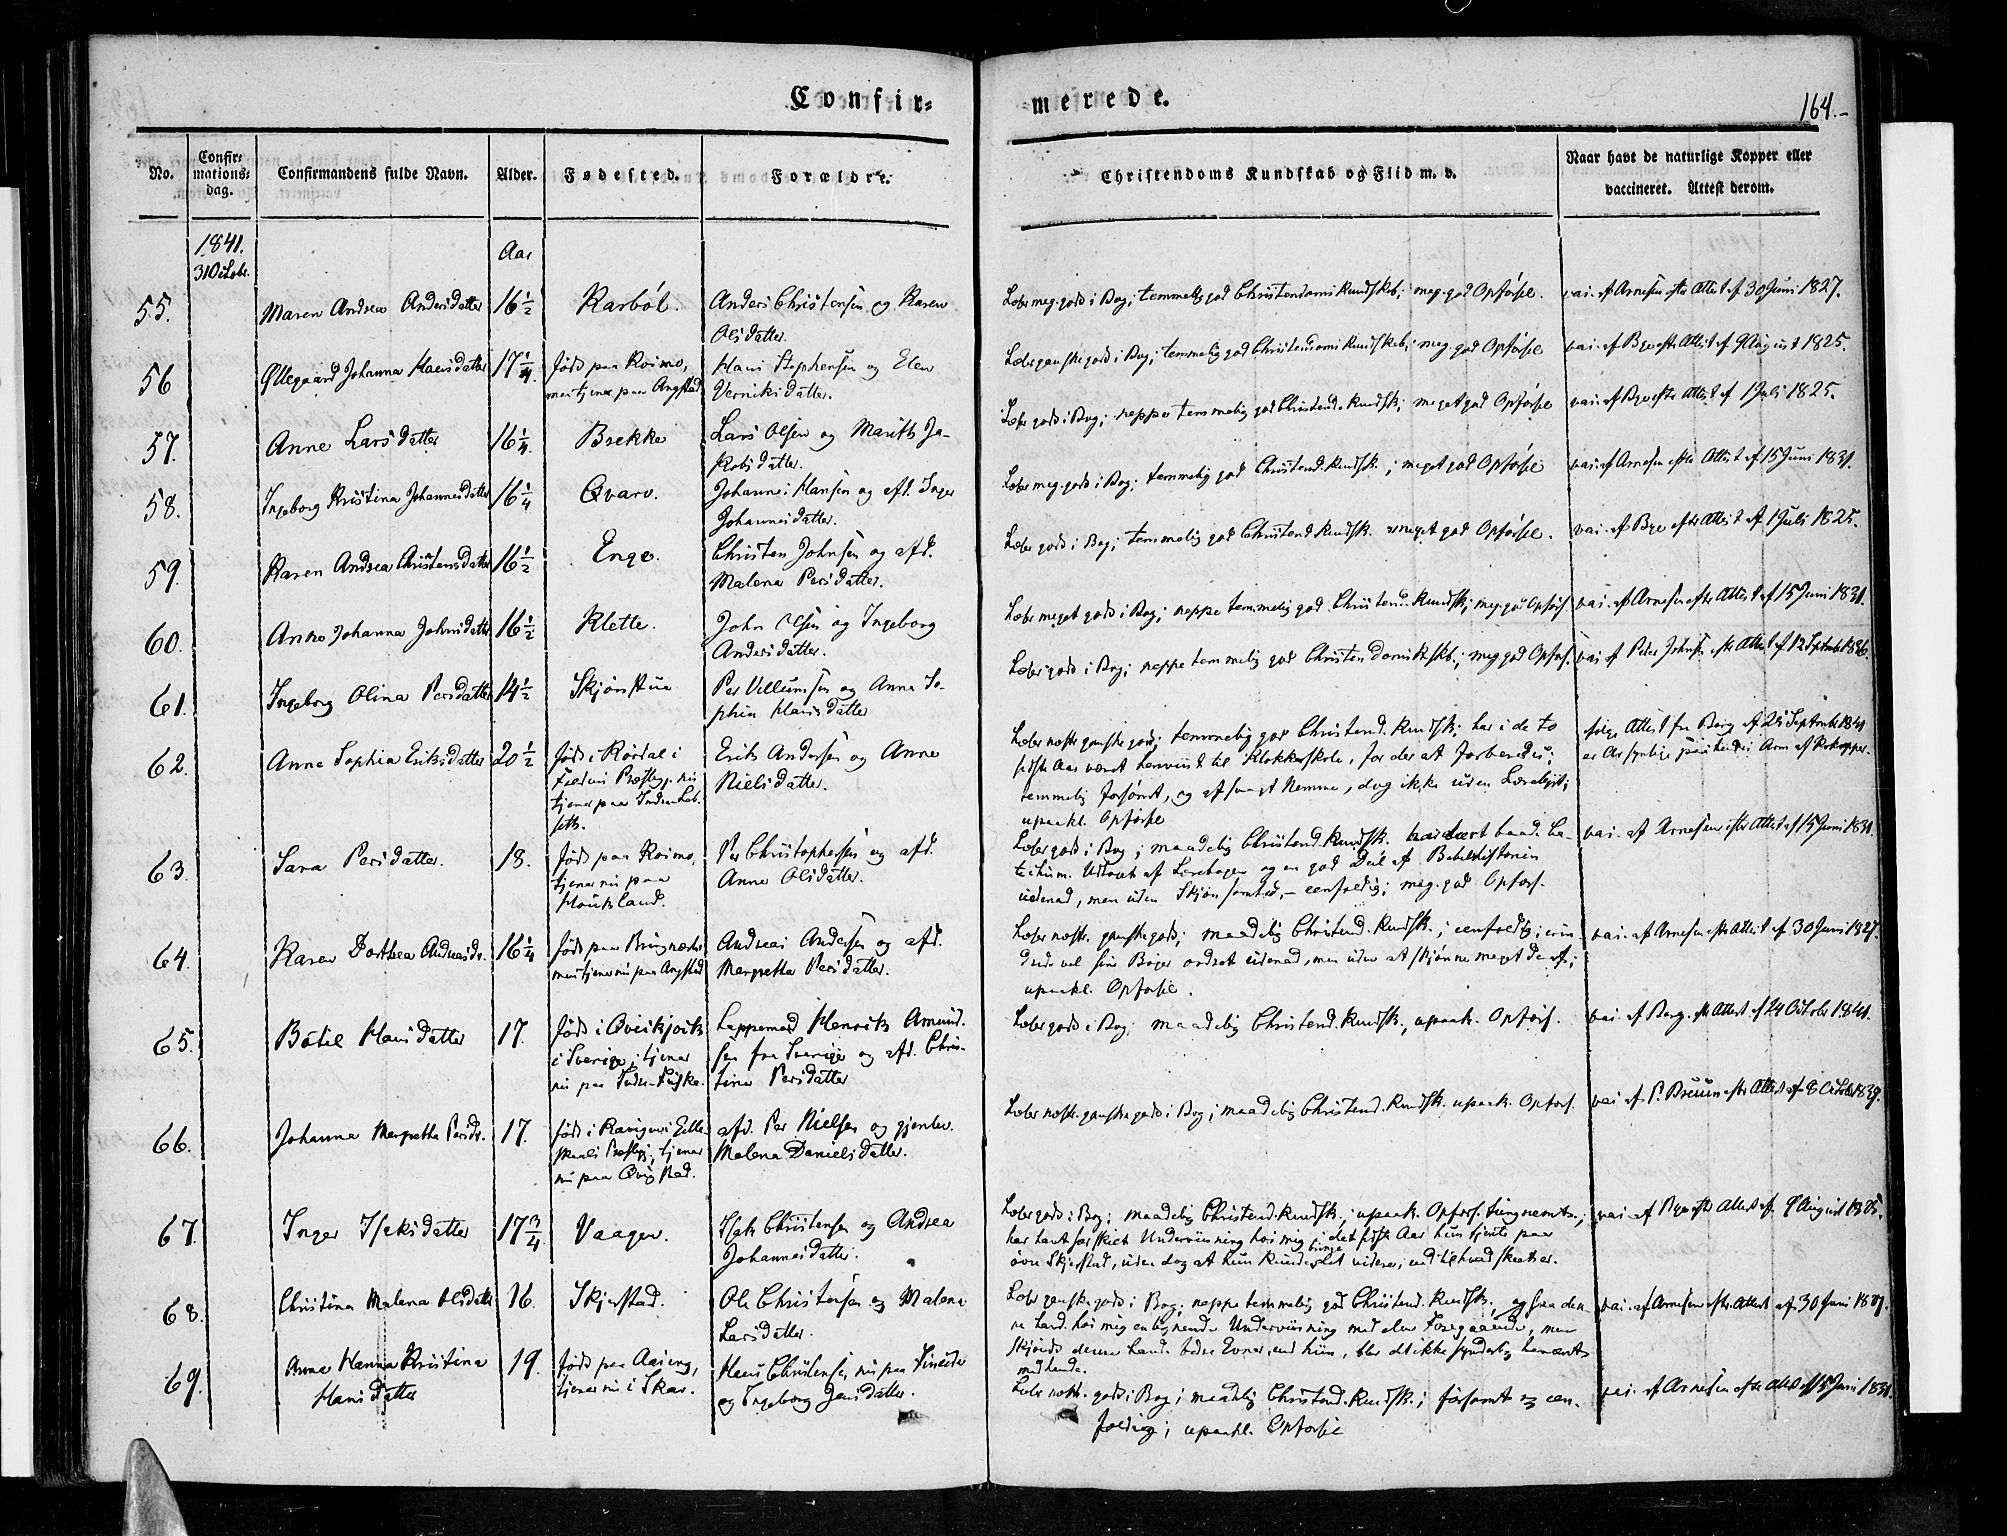 Confir=
merede.
164.-
No.
Confir=
mations=
dag.
Confirmandens fulde Navn.
Alder.
Fødested.
Forældre.
Christendoms Kundskab og Flid m. v.
Naar havt de naturlige Kopper eller
vaccineret. Attest derom.
1841.
31 Octobr.
Aar
55. Maren Andrea Andersdatter 16 1/2 Karbøl. Anders Christensen og Karen
Olsdatter.
Læser meg. godt i Bog; temmelig god Christendoms Kundskab; meg. god Opførsel. vai. af Arnesen efter Attest af 30 Juni 1827.
56 Øllegaard Johanna Hansdatter 17 1/4. født paa Roimo, Hans Stephensen og Elen
men tjener paa Angstad Verniksdatter.
Læser ganske godt i Bog; temmelig god Christendoms Kundskab; meg. god Opførsel vai. af Bye efter Attest af 9 August 1825.
57. Anne Larsdatter 16 1/4. Brekke Lars Olsen og Marith Ja-
kobsdatter.
Læser godt i Bog; neppe temmelig god Christend. Kundsk; meget god Opførsel vai. af Bye efter Attest af 1 Juli 1825.
58. Ingeborg Kristina Johannesdatter 16 1/4 Qvarv. Johannes Hansen og afd. Inger
Johannesdatter.
Læser meg. godt i Bog; temmelig god Christend. Kundsk.; meget god Opførsel vai. af Arnesen efter Attest af 15 Juni 1831.
59. Karen Andrea Christensdatter 16 1/2 Enge. Christen Johnsen og afd.
Malena Persdatter.
Læser godt i Bog; temmelig god Christend. Kundsk. meget god Opførsel. vai. af Bye efter Attest af 1 Juli 1825.
60. Anne Johanna Johnsdatter 16 1/2 Klette. John Olsen og Ingeborg
Andersdatter.
Læser meget godt i Bog; neppe temmelig god Christend. Kundsk; meg. god Opførs. vai. af Arnesen efter Attest af 15 Juni 1831.
61. Ingeborg Olina Persdatter 14 1/2 Skjønstue Per Villumsen og Anne So-
phia Hansdatter
Læser godt i Bog; neppe temmelig god Christendoms Kskb.; meg. god Opførs. vai af Peter Johns. eftr Attest af 12 Septembr 1836.
62. Anne Sophia Eriksdatter 20 1/2 født i Rørdal i Erik Andersen og Anne
Præstegj. nu Nielsdatter.
tjener paa Indre
Læser noksk. ganske godt; temmelig god Christend. Kundsk; har i de to
sidste Aar været henviist til Klokkerskole, for der at forberedes;
temmelig forsømt, og af svagt Nemme, dog ikke uden Lærelyst;
upaakl. Opførsel
ifølge Attest fra Berg af 25 September 1841
er Ar synlige paa hendes Arm af Kokopper.
63. Sara Persdatter. 18. født paa Roimo, Per Christophersen og afd.
tjener nu paa Anne Olsdatter.
Haukland.
Læser godt i Bog; maadelig Christend. Kundsk. har lært baade Ca-
techism. Udtoget af Lærebogen og en god Deel af Bibelhistorien
udenad, men uden Skjønsomhed,- eenfoldig; meg. god Opførs.
vai. af Arnesen efter Attest af 15 Juni 1831.
64. Karen Dorthea Andreasdr. 16 1/4 født paa Andreas Andersen og afd.
men tjener nu paa Angstad Margretha Persdatter.
Læser noksk. ganske godt; maadelig Christend. Kundsk.; eenfoldig;
vel sine Bøger ordret udenad, men uden at skjønne meget deraf;
upaakl. Opførsel.
vai. af Arnesen eftr Attest af 30 Juni 1827.
65. Bótil Hansdatter 17. født i Qvikjok Lappemand Henrik Amund-
i Sverige; tjener sen fra Sverige og afd. Chris-
nu paa Indre- tina Persdatter
Læser godt i Bog; maadelig Christend. Kundsk., upaak. Opførs. vai. af Berg. eftr Attest af 24 October 1841.
66. Johanna Margretha Persdr. 17. født i Afd. Per Nielsen og gjenlev.
Præstegj; tjener Malena Danielsdatter.
nu paa Qvigstad.
Læser noksk. ganske godt i Bog; maadelig Christend. Kundsk. upaak. Opførs. vai af P. Bruun efter Attest af 8 Octobr 1839.
67. Inger Isaksdatter 17 3/4 Vaagen. Isak Christensen og Andrea
Johannesdatter.
Læser godt i Bog; maadelig Christend. Kundsk.; upaak. Opførs. tungnem.;
har havt særskilt Underviisning hos mig i det sidste Aar hun tjente paa
øvre Skjerstad, uden dog at hun kunde bringes videre, end til hvad skeet er.
vai. af Bye efter Attest af. 9 August 1825.
68. Christina Malena Olsdatter 16. Skjerstad. Ole Christensen og Malena
Larsdatter.
Læser ganske godt i Bog; neppe temmelig god Christend. Kundsk., og har den-
ne havt hos mig en lignende Underviisning med den Foregaaende, men
skjøndt denne havde bedre Evner, end hiin, blev det ikke synderlig
med hende.
vai. af Arnesen eftr. Attest af 30 Juni 1827.
69. Anne Hanna Kristina 19. født paa Hans Christensen, nu paa
Hansdatter tjener nu i Skar. og Ingeborg Jensdatter.
Læser noksk. godt i Bog; maadelig Christend. Kundsk.; forsømt og een-
foldig; upaakl. Opførsel
vai. af Arnesen efter Attest af 15 Juni 1831.